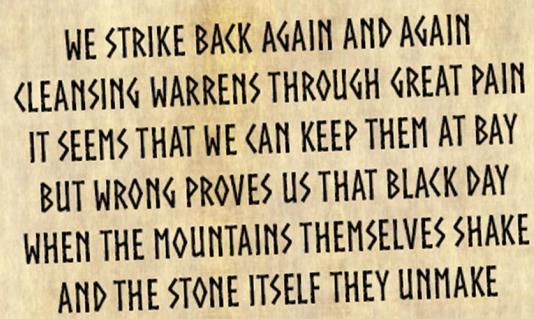 WE STRIKE BACK AGAIN AND AGAIN
CLEANSING WARRENS THROUGH GREAT PAIN
IT SEEMS THAT WE CAN KEEP THEM AT BAY
BUT WRONG PROVES US THAT BLACK DAY
WHEN THE MOUNTAINS THEMSELVES SHAKE
AND THE STONE ITSELF THEY UNMAKE